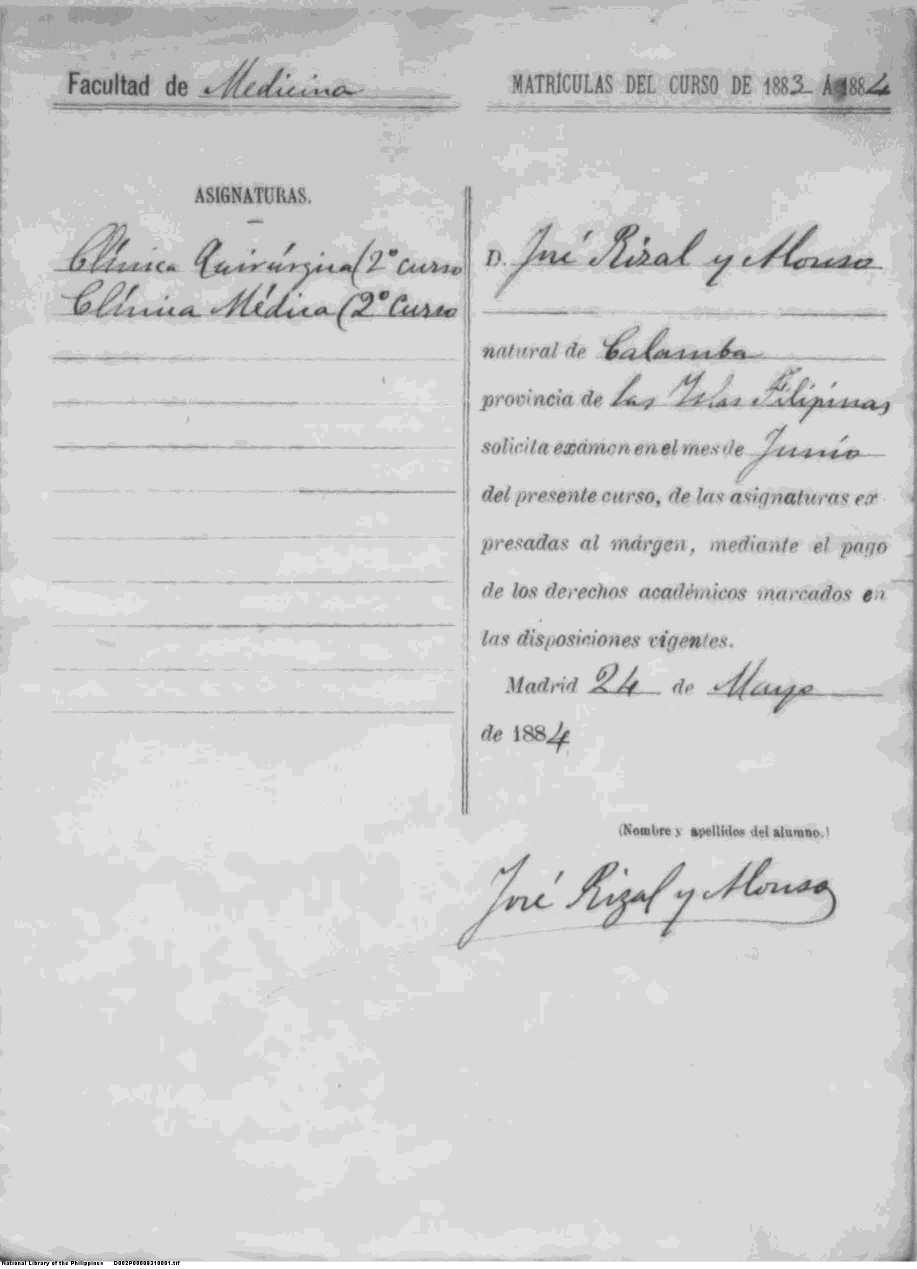 Facultad de Medicina
MATRÍCULAS DEL CURSO DE 1883 Á 1884
ASIGNATURAS.
Clínica Quirúrgica (2º curso
Clínica Médica (2º Curso
D. José Rizal y Alonso
natural de Calamba
provincia de las Islas Filipinas
solicita exámen en el mes de Junio
del presente curso, de las asignaturas ex
presadas al márgen, mediante el pago
de los derechos académicos marcados en
las disposiciones vigentes.
Madrid 24 de Mayo
de 1884
(Nombre y apellidos del alumno.)
José Rizal y Alonso
National Library of the Philippines D002P00009310001.tif